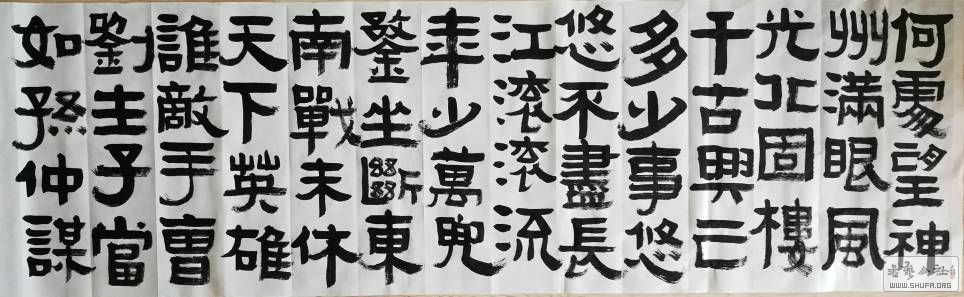 何處望神
州滿眼風
光北固樓
千古興亡
多少事悠
悠不盡長
江滾滾流
年少萬兜
鍪坐斷東
南戰未休
天下英雄
誰敵手曹
劉生子當
如孫仲謀
书艺公社
WWW.SHUFA.ORG